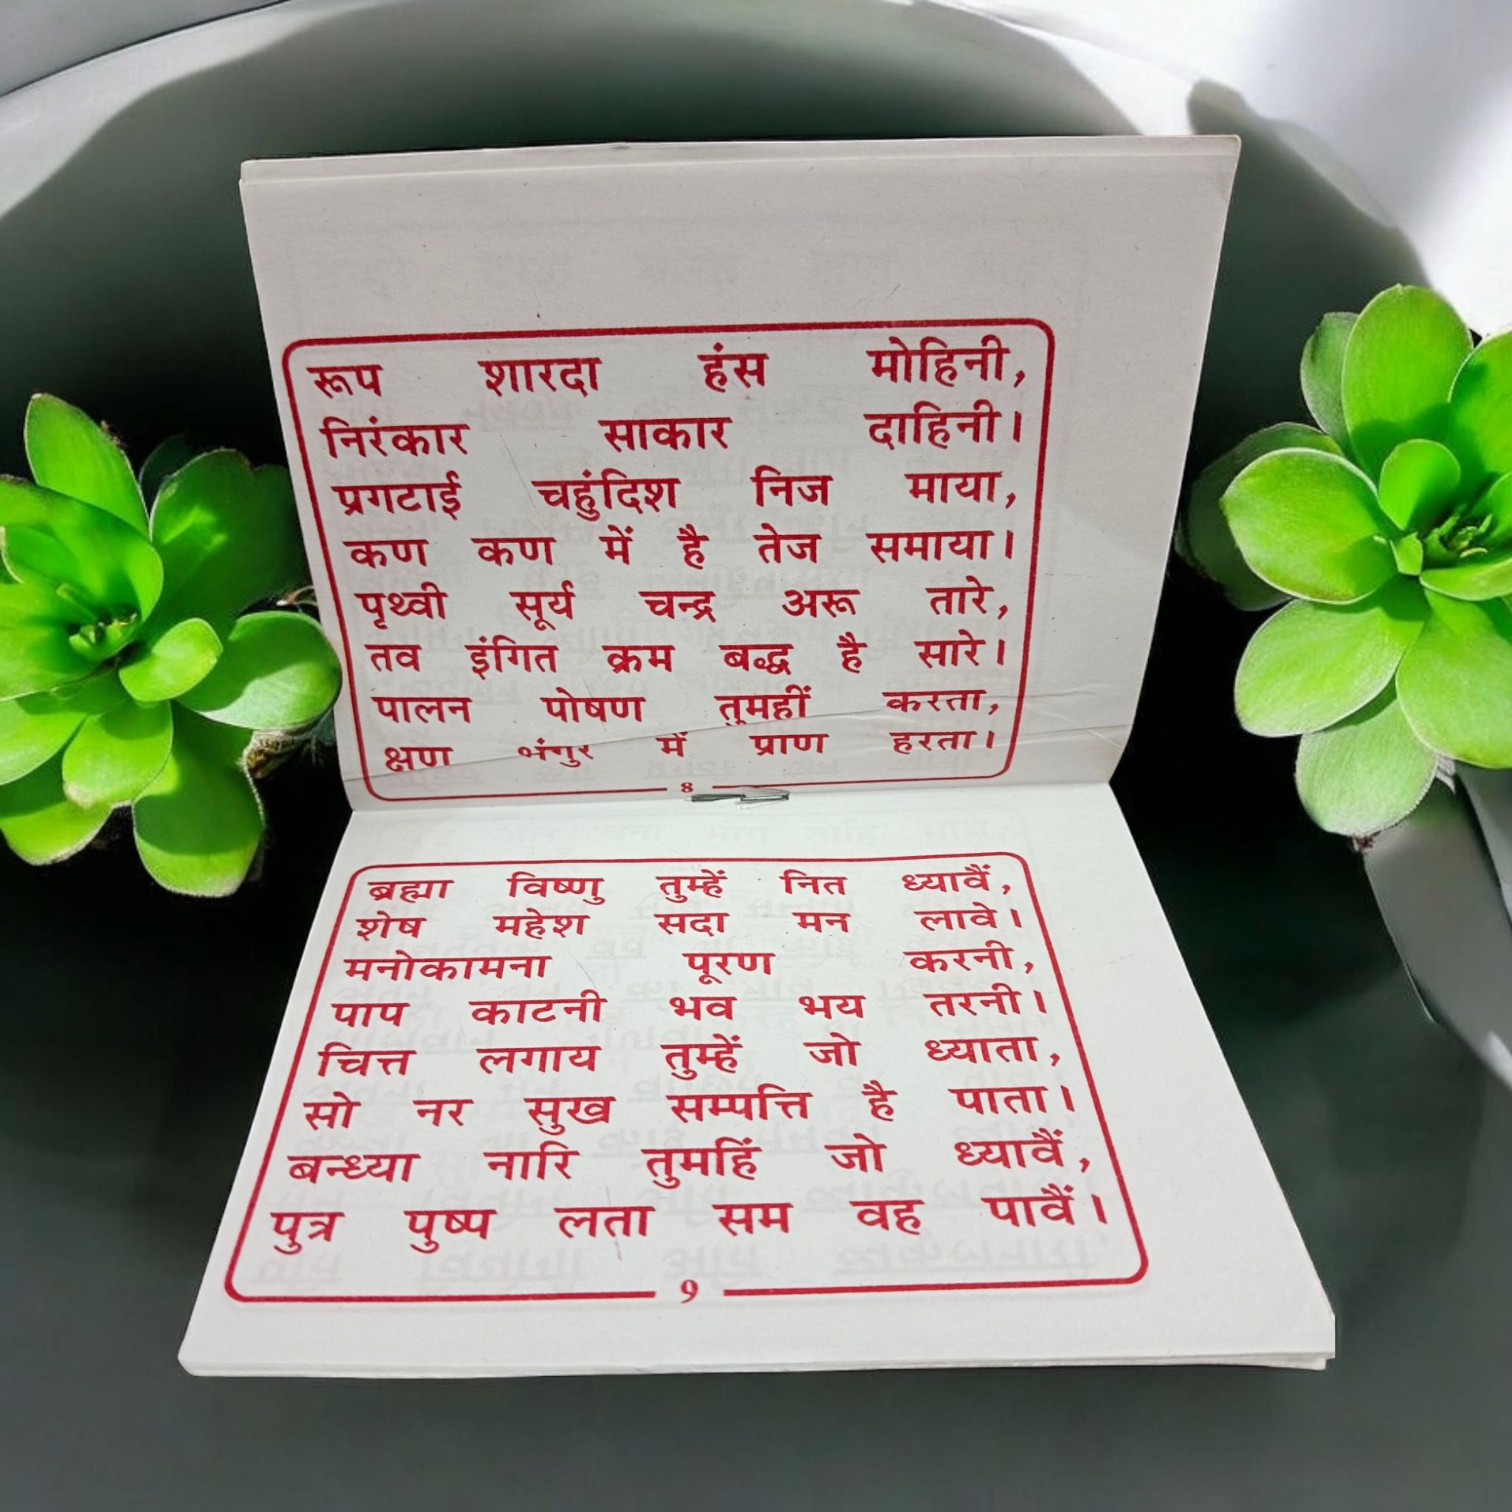 रूप शारदा हंस मोहिनी,
निरंकार साकार दाहिनी।
प्रगटाई चहुंदिश निज माया,
कण कण में है तेज समाया।
पृथ्वी सूर्य चन्द्र अरू तारे,
तव इंगित क्रम बद्ध है सारे।
पालन पोषण तुमहीं करता,
क्षण भंगुर में प्राण हरता।
8
ब्रह्मा विष्णु तुम्हें नित ध्यावैं,
शेष महेश सदा मन लावे।
मनोकामना पूरण करनी,
पाप काटनी भव भय तरनी।
चित्त लगाय तुम्हें जो ध्याता,
सो नर सुख सम्पत्ति है पाता।
बन्ध्या नारि तुमहिं जो ध्यावैं,
पुत्र पुष्प लता सम वह पावैं।
9